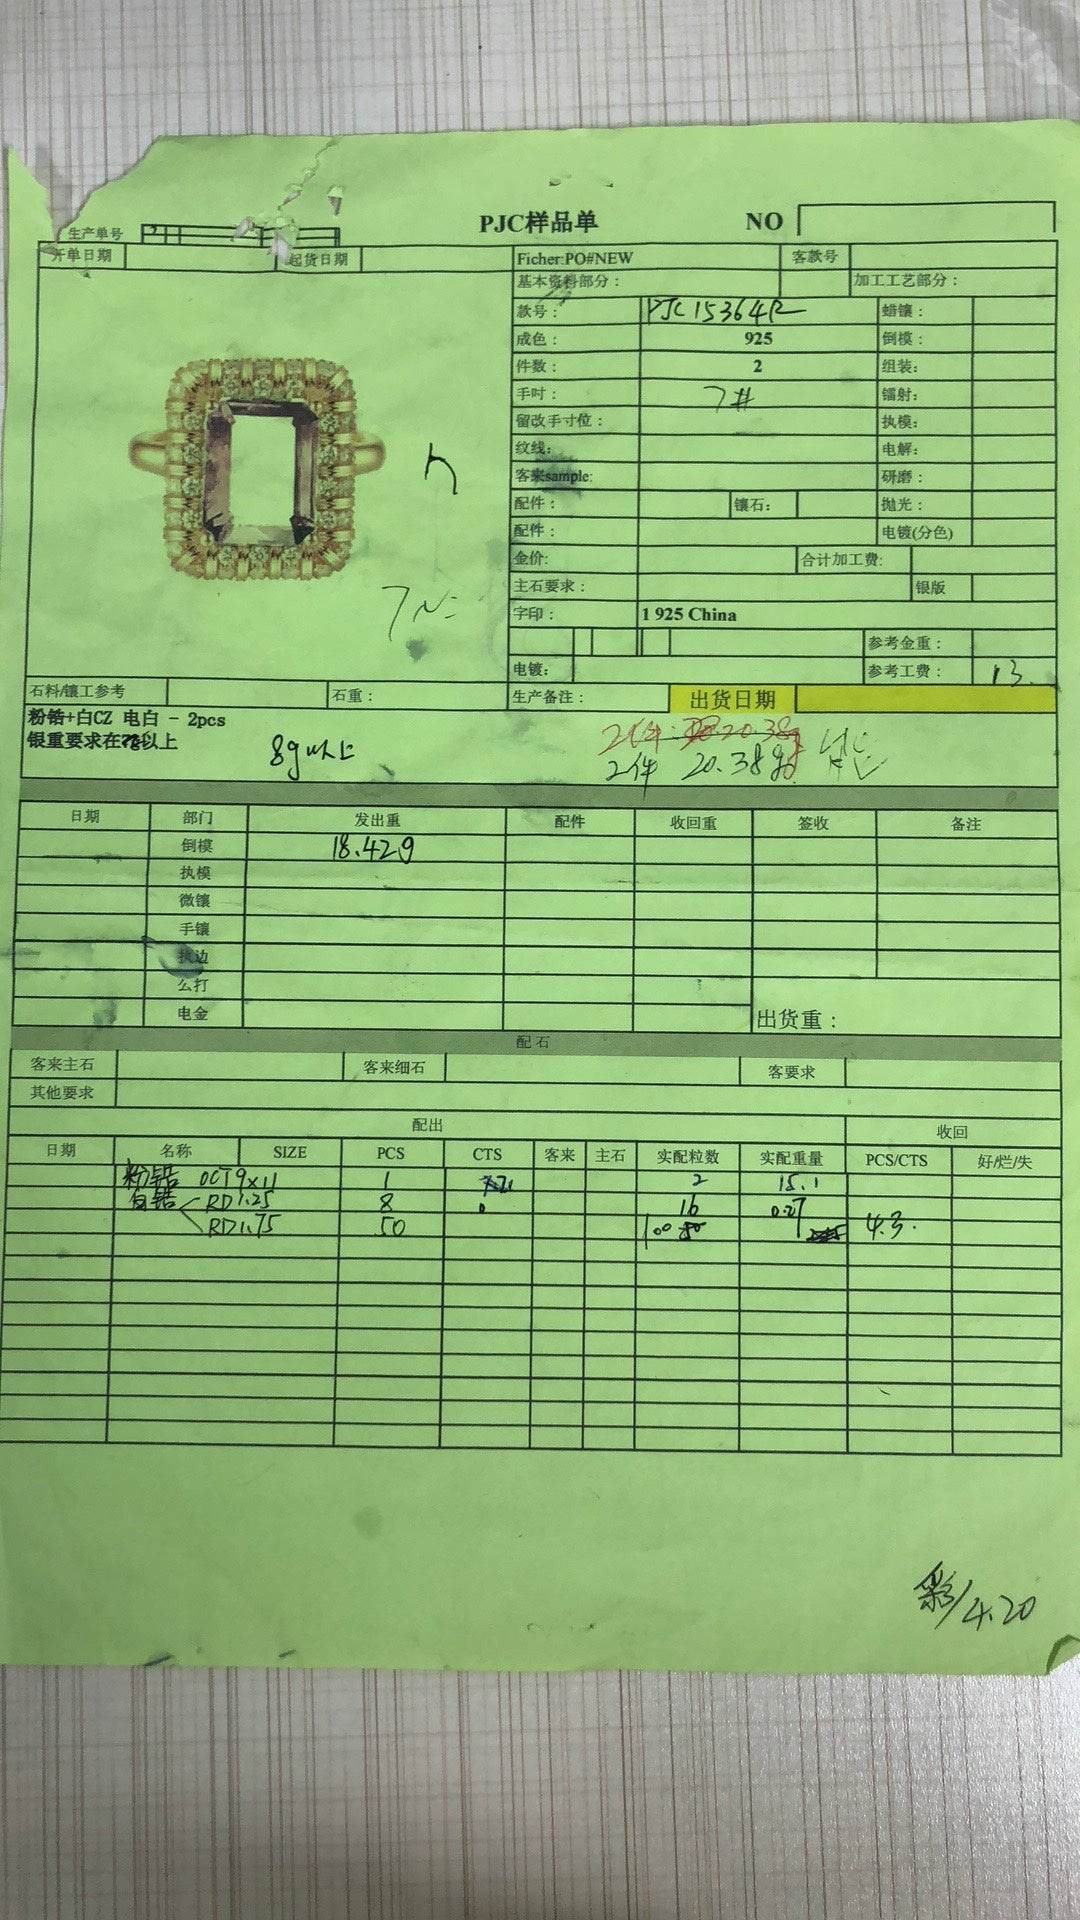 PJC样品单 NO
生产单号
开单日期 起货日期 Ficher:PO#NEW 客款号
基本资料部分： 加工工艺部分：
款号： PJC15364R 蜡镶：
成色： 925 倒模：
件数： 2 组装：
手吋： 7# 镭射：
留改手寸位： 执模：
纹线： 电解：
客来sample: 研磨：
配件： 镶石： 抛光：
配件： 电镀(分色)
金价: 合计加工费:
主石要求： 银版
字印： 1 925 China
参考金重：
电镀： 参考工费： 13.
石料/镶工参考 石重： 生产备注： 出货日期
粉锆+白CZ 电白 - 2pcs
银重要求在以上 8g以上
2件 20.38g
2件 20.38g
日期 部门 发出重 配件 收回重 签收 备注
倒模 18.42g
执模
微镶
手镶
执边
么打
电金 出货重：
配石
客来主石 客来细石 客要求
其他要求
配出 收回
日期 名称 SIZE PCS CTS 客来 主石 实配粒数 实配重量 PCS/CTS 好/烂/失
粉锆 OCT9×11 1 2 15.1
白锆 RD1.25 8 16 0.27
RD1.75 50 100 4.3.
彩/4.20